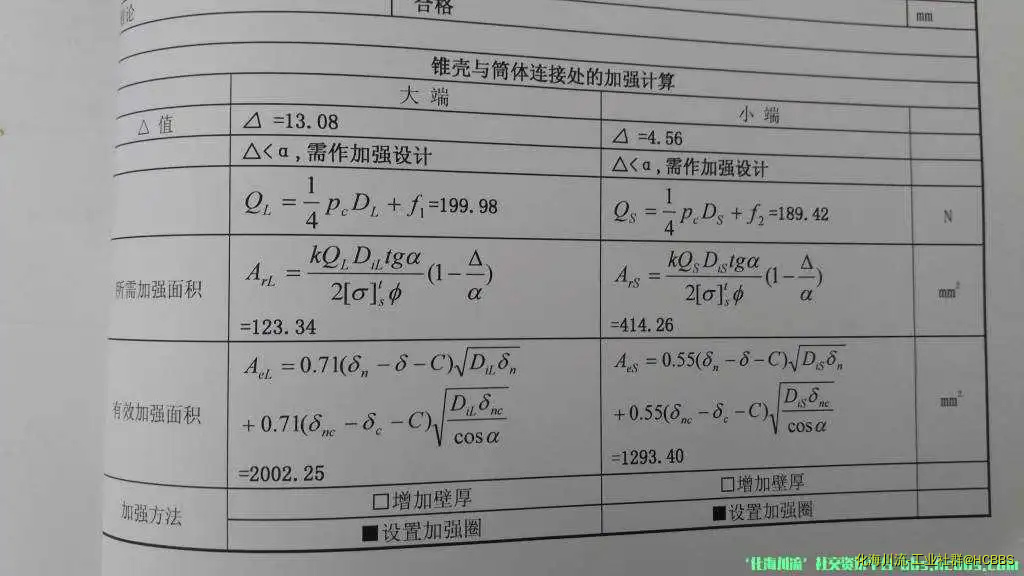 合格
mm
锥壳与筒体连接处的加强计算
大 端
小 端
△ 值
△ =13.08
△ =4.56
△<α,需作加强设计
△<α,需作加强设计
Q_L = \frac{1}{4} p_c D_L + f_1 =199.98
Q_S = \frac{1}{4} p_c D_S + f_2 =189.42
N
所需加强面积
A_{rL} = \frac{kQ_L D_{iL} tgα}{2[σ]_s^t ϕ} (1 - \frac{Δ}{α})
=123.34
A_{rS} = \frac{kQ_S D_{iS} tgα}{2[σ]_s^t ϕ} (1 - \frac{Δ}{α})
=414.26
mm²
有效加强面积
A_{eL} = 0.71(δ_n - δ - C)\sqrt{D_{iL} δ_n}
+ 0.71(δ_{nc} - δ_c - C)\sqrt{\frac{D_{iL} δ_{nc}}{cos α}}
=2002.25
A_{eS} = 0.55(δ_n - δ - C)\sqrt{D_{iS} δ_n}
+ 0.55(δ_{nc} - δ_c - C)\sqrt{\frac{D_{iS} δ_{nc}}{cos α}}
=1293.40
mm²
加强方法
□增加壁厚
□增加壁厚
■设置加强圈
■设置加强圈
化海川流·工业社群@HCBBS